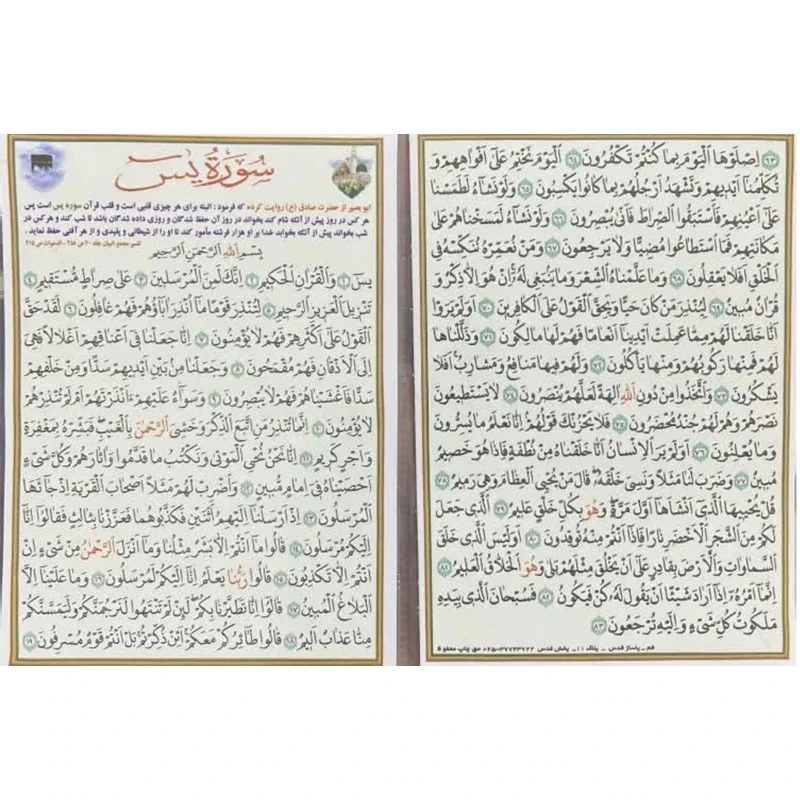 سُورَةُ يس
ابو بصیر از حضرت صادق (ع) روایت کرده که فرمود : البته برای هر چیزی قلبی است و قلب قرآن سوره یس است پس
هر کس در روز پیش از آنکه شام کند بخواند در روز آن حفظ شدگان و روزی داده شدگان باشد تا شب کند و هر کس در
شب بخواند پیش از آنکه بخوابد خدا بر او هزار فرشته مأمور کند تا او را از شیطانی و پلیدی و از هر آفتی حفظ نماید .
تفسیر مجمع البیان جلد ۲۰ ص ۳۵۸ - الدعوات ص ۲۱۵
بِسْمِ اللهِ الرَّحْمٰنِ الرَّحيمِ
يس ﴿١﴾ وَالْقُرْآنِ الْحَكيمِ ﴿٢﴾ اِنَّكَ لَمِنَ الْمُرْسَلينَ ﴿٣﴾ عَلىٰ صِراطٍ مُسْتَقيمٍ ﴿٤﴾
تَنْزيلَ الْعَزيزِ الرَّحيمِ ﴿٥﴾ لِتُنْذِرَ قَوْماً ما اُنْذِرَ اٰباؤُهُمْ فَهُمْ غافِلُونَ ﴿٦﴾ لَقَدْ حَقَّ
الْقَوْلُ عَلىٰ اَكْثَرِهِمْ فَهُمْ لا يُؤْمِنُونَ ﴿٧﴾ اِنّا جَعَلْنا فى اَعْناقِهِمْ اَغْلالاً فَهِىَ
اِلَى الْاَذْقانِ فَهُمْ مُقْمَحُونَ ﴿٨﴾ وَجَعَلْنا مِنْ بَيْنِ اَيْديهِمْ سَدّاً وَمِنْ خَلْفِهِمْ
سَدّاً فَاَغْشَيْناهُمْ فَهُمْ لا يُبْصِرُونَ ﴿٩﴾ وَسَوٰاءٌ عَلَيْهِمْ ءَاَنْذَرْتَهُمْ اَمْ لَمْ تُنْذِرْهُمْ
لا يُؤْمِنُونَ ﴿١٠﴾ اِنَّما تُنْذِرُ مَنِ اتَّبَعَ الذِّكْرَ وَخَشِىَ الرَّحْمٰنَ بِالْغَيْبِ فَبَشِّرْهُ بِمَغْفِرَةٍ
وَاَجْرٍ كَريمٍ ﴿١١﴾ اِنّا نَحْنُ نُحْيِى الْمَوْتىٰ وَنَكْتُبُ ما قَدَّمُوا وَاٰثارَهُمْ وَكُلَّ شَىْءٍ
اَحْصَيْناهُ فى اِمامٍ مُبينٍ ﴿١٢﴾ وَاضْرِبْ لَهُمْ مَثَلاً اَصْحابَ الْقَرْيَةِ اِذْ جٰاءَهَا
الْمُرْسَلُونَ ﴿١٣﴾ اِذْ اَرْسَلْنا اِلَيْهِمُ اثْنَيْنِ فَكَذَّبُوهُما فَعَزَّزْنا بِثالِثٍ فَقالُوا اِنّا
اِلَيْكُمْ مُرْسَلُونَ ﴿١٤﴾ قالُوا ما اَنْتُمْ اِلّا بَشَرٌ مِثْلُنا وَما اَنْزَلَ الرَّحْمٰنُ مِنْ شَىْءٍ اِنْ
اَنْتُمْ اِلّا تَكْذِبُونَ ﴿١٥﴾ قالُوا رَبُّنا يَعْلَمُ اِنّا اِلَيْكُمْ لَمُرْسَلُونَ ﴿١٦﴾ وَما عَلَيْنا اِلَّا
الْبَلاغُ الْمُبينُ ﴿١٧﴾ قالُوا اِنّا تَطَيَّرْنا بِكُمْ لَئِنْ لَمْ تَنْتَهُوا لَنَرْجُمَنَّكُمْ وَلَيَمَسَّنَّكُمْ
مِنّا عَذابٌ اَليمٌ ﴿١٨﴾ قالُوا طائِرُكُمْ مَعَكُمْ اَئِنْ ذُكِّرْتُمْ بَلْ اَنْتُمْ قَوْمٌ مُسْرِفُونَ ﴿١٩﴾
﴿٦٣﴾ اِصْلَوْهَا الْيَوْمَ بِما كُنْتُمْ تَكْفُرُونَ ﴿٦٤﴾ اَلْيَوْمَ نَخْتِمُ عَلىٰ اَفْواهِهِمْ وَ
تُكَلِّمُنا اَيْديهِمْ وَتَشْهَدُ اَرْجُلُهُمْ بِما كانُوا يَكْسِبُونَ ﴿٦٥﴾ وَلَوْ نَشٰاءُ لَطَمَسْنا
عَلىٰ اَعْيُنِهِمْ فَاسْتَبَقُوا الصِّراطَ فَاَنّىٰ يُبْصِرُونَ ﴿٦٦﴾ وَلَوْ نَشٰاءُ لَمَسَخْناهُمْ عَلىٰ
مَكانَتِهِمْ فَمَا اسْتَطاعُوا مُضِيّاً وَلا يَرْجِعُونَ ﴿٦٧﴾ وَمَنْ نُعَمِّرْهُ نُنَكِّسْهُ فِى
الْخَلْقِ اَفَلا يَعْقِلُونَ ﴿٦٨﴾ وَما عَلَّمْناهُ الشِّعْرَ وَما يَنْبَغى لَهُ اِنْ هُوَ اِلّا ذِكْرٌ وَ
قُرْاٰنٌ مُبينٌ ﴿٦٩﴾ لِيُنْذِرَ مَنْ كانَ حَيّاً وَيَحِقَّ الْقَوْلُ عَلَى الْكافِرينَ ﴿٧٠﴾ اَوَلَمْ يَرَوْا
اَنّا خَلَقْنا لَهُمْ مِمّا عَمِلَتْ اَيْدينا اَنْعاماً فَهُمْ لَها مالِكُونَ ﴿٧١﴾ وَذَلَّلْناها
لَهُمْ فَمِنْها رَكُوبُهُمْ وَمِنْها يَأْكُلُونَ ﴿٧٢﴾ وَلَهُمْ فيها مَنافِعُ وَمَشارِبُ اَفَلا
يَشْكُرُونَ ﴿٧٣﴾ وَاتَّخَذُوا مِنْ دُونِ اللهِ اٰلِهَةً لَعَلَّهُمْ يُنْصَرُونَ ﴿٧٤﴾ لا يَسْتَطيعُونَ
نَصْرَهُمْ وَهُمْ لَهُمْ جُنْدٌ مُحْضَرُونَ ﴿٧٥﴾ فَلا يَحْزُنْكَ قَوْلُهُمْ اِنّا نَعْلَمُ ما يُسِرُّونَ
وَما يُعْلِنُونَ ﴿٧٦﴾ اَوَلَمْ يَرَ الْاِنْسانُ اَنّا خَلَقْناهُ مِنْ نُطْفَةٍ فَاِذا هُوَ خَصيمٌ
مُبينٌ ﴿٧٧﴾ وَضَرَبَ لَنا مَثَلاً وَنَسِىَ خَلْقَهُ قالَ مَنْ يُحْيِى الْعِظامَ وَهِىَ رَميمٌ ﴿٧٨﴾
قُلْ يُحْييهَا الَّذى اَنْشَاَها اَوَّلَ مَرَّةٍ وَهُوَ بِكُلِّ خَلْقٍ عَليمٌ ﴿٧٩﴾ اَلَّذى جَعَلَ
لَكُمْ مِنَ الشَّجَرِ الْاَخْضَرِ ناراً فَاِذا اَنْتُمْ مِنْهُ تُوقِدُونَ ﴿٨٠﴾ اَوَلَيْسَ الَّذى خَلَقَ
السَّماواتِ وَالْاَرْضَ بِقادِرٍ عَلىٰ اَنْ يَخْلُقَ مِثْلَهُمْ بَلىٰ وَهُوَ الْخَلّاقُ الْعَليمُ ﴿٨١﴾
اِنَّما اَمْرُهُ اِذا اَرادَ شَيْئاً اَنْ يَقُولَ لَهُ كُنْ فَيَكُونُ ﴿٨٢﴾ فَسُبْحانَ الَّذى بِيَدِهِ
مَلَكُوتُ كُلِّ شَىْءٍ وَاِلَيْهِ تُرْجَعُونَ ﴿٨٣﴾
قم ـ پاساژ قدس ـ پلاک ١١ـ پخش قدس ٣٧٧٤٣٧٢٢-٠٢٥ حق چاپ محفوظ